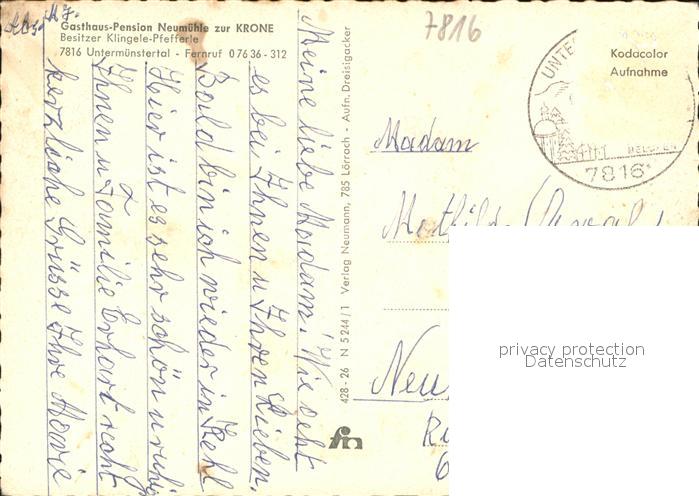 Gasthaus-Pension Neumühle zur KRONE
Besitzer Klingele-Pfefferle
7816 Untermünstertal - Fernruf 0 76 36 - 312
Meine liebe Madam! Wie geht
es bei Ihnen u Ihren Lieben.
Bald bin ich wieder in Kehl
Hier ist es sehr schön u ruhig
Ihnen u Familie Erhart recht
herzliche Grüsse Ihre
428 - 26 N 5244/1 Verlag Neumann, 785 Lörrach - Aufn. Dreisigacker
7816
Kodacolor
Aufnahme
UNTE
BELCHEN
7816
Madam
fm
privacy protection
Datenschutz